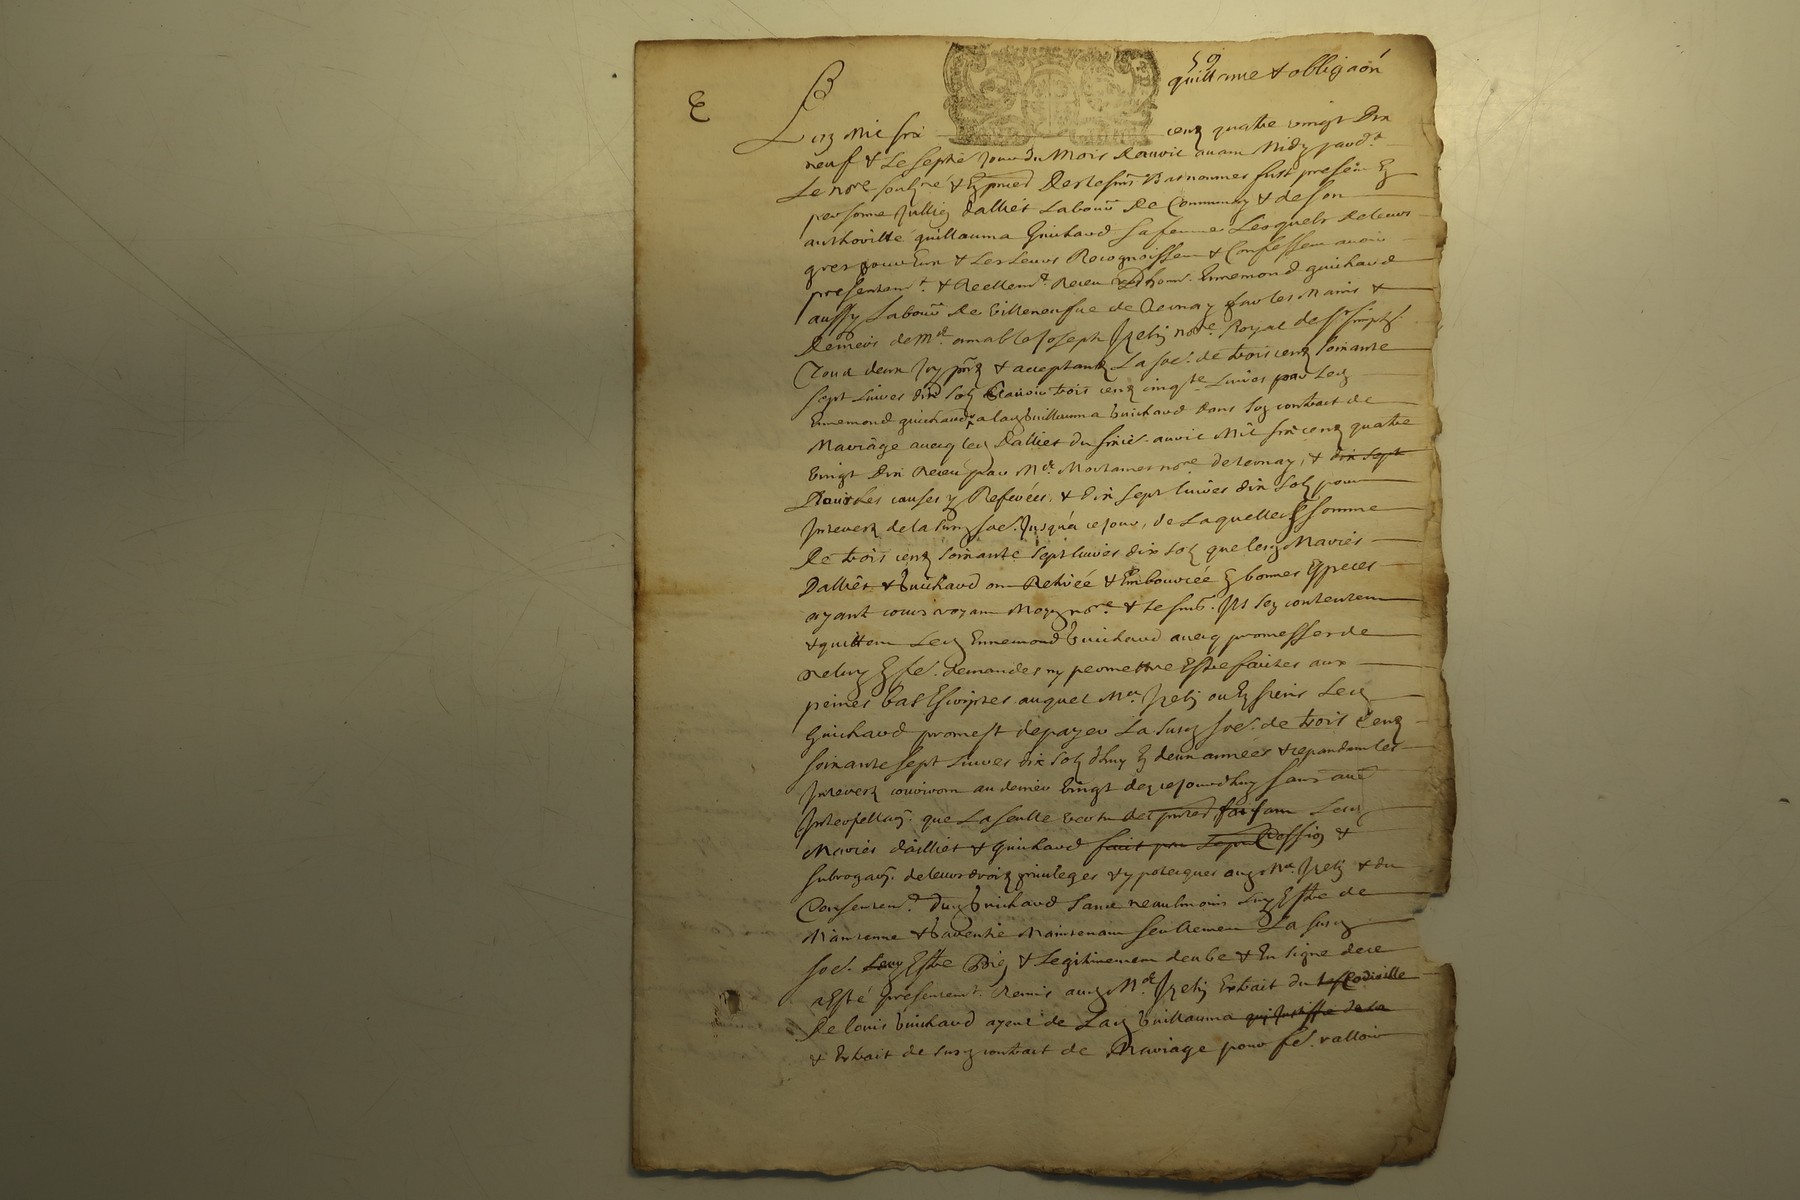 59
quittance & obliga͠on
L'an mil six cens quatre vingt dix
neuf & le septie jour du mois d'avril avant midy pard.t
Le no.re soubz.né & en pnce des tesm.s bas nommes fust present en
personne Jullien dalliet labour de Communay & de son
authoritté guillauma guichard sa femme Lesquels de leurs
gres pour eux & les leurs Recognoissent & Confessent avoir
presentem.t & Reellem.t Receu d'hon. Ennemond guichard
aussy labour de villeneufve de Ternay par les mains &
deniers de M.e amable Joseph Jzely no.re Royal de St simph.
d'ozon icy pnt & acceptant La so.e de trois cens soixante
sept livres dix solz scavoir trois cens cinq.te livres par led
Ennemond guichard a lad guillauma guichard dans son contract de
Mariage avecq led dalliet du avril mil six cens quatre
vingt dix Receu par M.e no.re de ternay, & dix sept
pour les causes y Referées, & dix sept livres dix solz pour
Jnterest de la susd so.e jusqu'a ce jour, de Laquelle somme
De trois cens soixante sept livres dix solz que lesd Maries
Dalliet & guichard ont Retirée & Emboursée en bonnes Especes
ayant cours voyant moyd no.re & tesm. Jls sen contentent
& quittent Led Ennemond guichard avecq promesse de
ne luy en fe. demandes ny permettre Estre faites aux
peines bas Escriptes auquel M.e Jzely ou Es siens Led
Guichard promest de payer La susd so.e de trois cens
soixante sept livres dix solz d'huy en deux années & cependant les
Jnterest courront au denier vingt dez ce jourd'huy sans autre
Jnterpellaon. que La seulle vertu des pntes, font Lesd
Maries dalliet & guichard fait par Cession &
subrogaon. de leurs droits privileges & ypoteques aud M.e Jzely & du
Consentem.t dud guichard sans neaulmoins luy Estre de
Maintenue & Garentie Maintenant seullement La susd
so.e Estre bien & Legitimement deube & En signe de ce
a Esté presentem.t Remis aud M.e Jzely Extrait du Codicille
De louis guichard ayeul de Lad guillauma qui justiffie de la
& Extrait de susd contract de Mariage pour fe. valloir